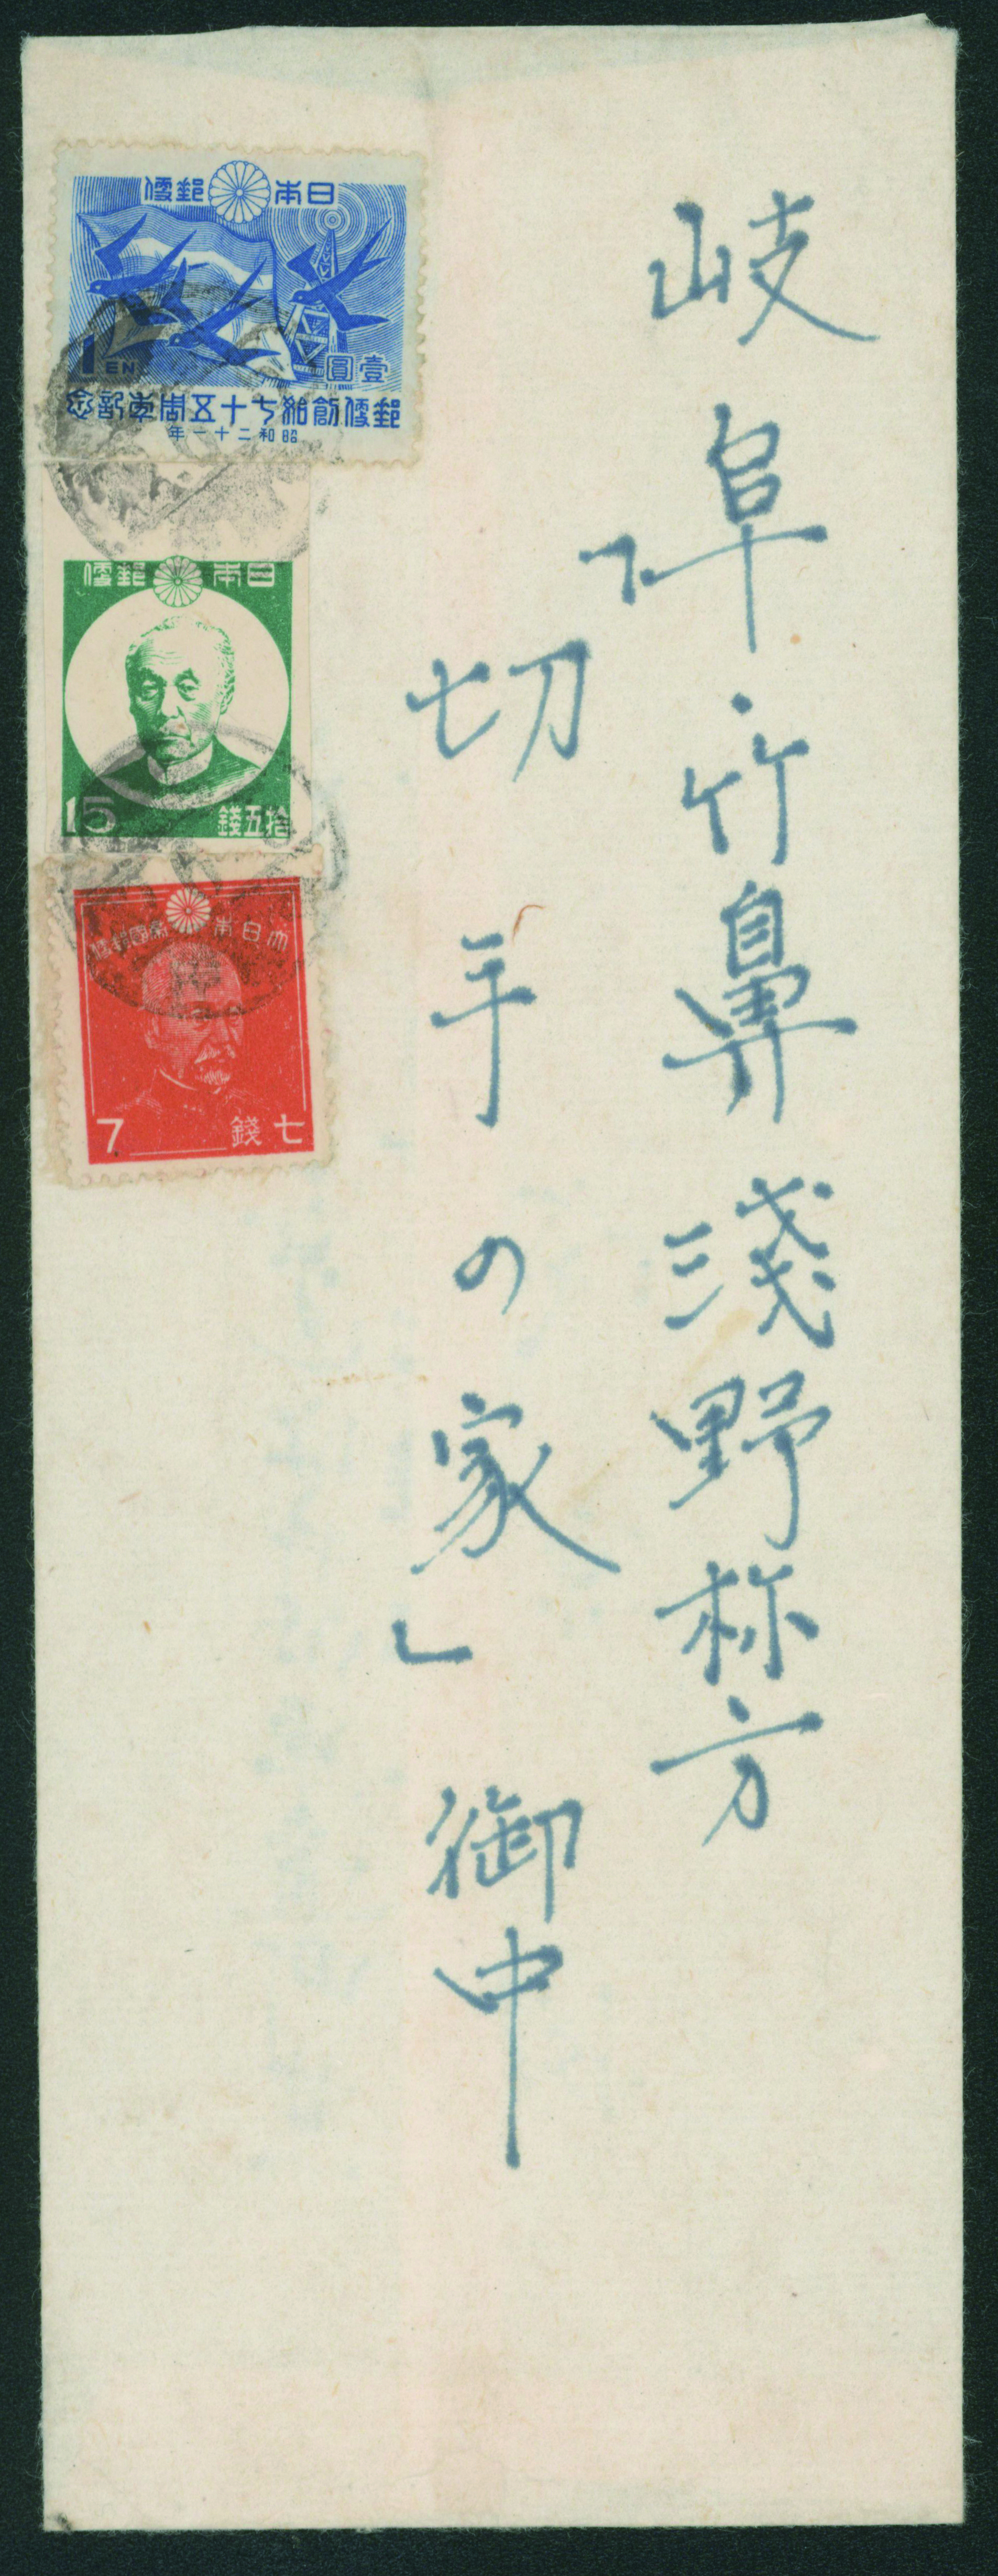 岐阜・竹鼻 淺野称方
「切手の家」御中
日本郵便
1 EN
壹圓
郵便創始七十五周年記念
昭和二十一年
日本郵便
15
拾五錢
大日本帝國郵便
7
七錢